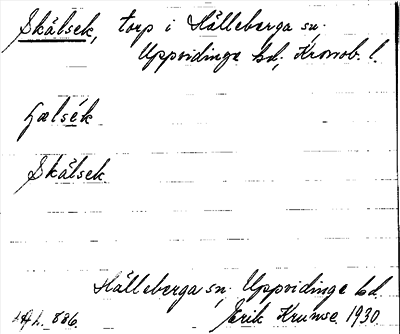 Skålsek, torp i Hälleberga sn.
Uppvidinge hd, Kronob. l.
Skålsek
Hälleberga sn, Uppvidinge hd.
Erik Krunse 1930